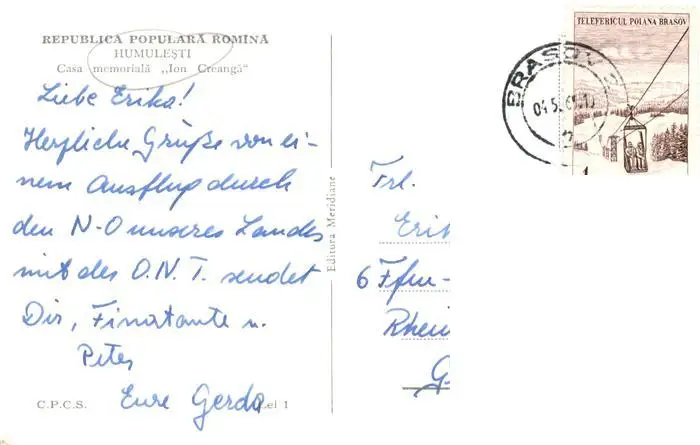 REPUBLICA POPULARĂ ROMÎNĂ
HUMULEȘTI
Casa memorială „Ion Creangă"
Liebe Erika!
Herzliche Grüße von ei-
nem Ausflug durch
den N-O unseres Landes
mit des O.N.T. sendet
Dir, Finatante u.
Peter
Eure Gerda
C.P.C.S.
Lei 1
Editura Meridiane
TELEFERICUL POIANA BRASOV
BRASOV
Frl.
Erik
6 Ffm-
Rhein